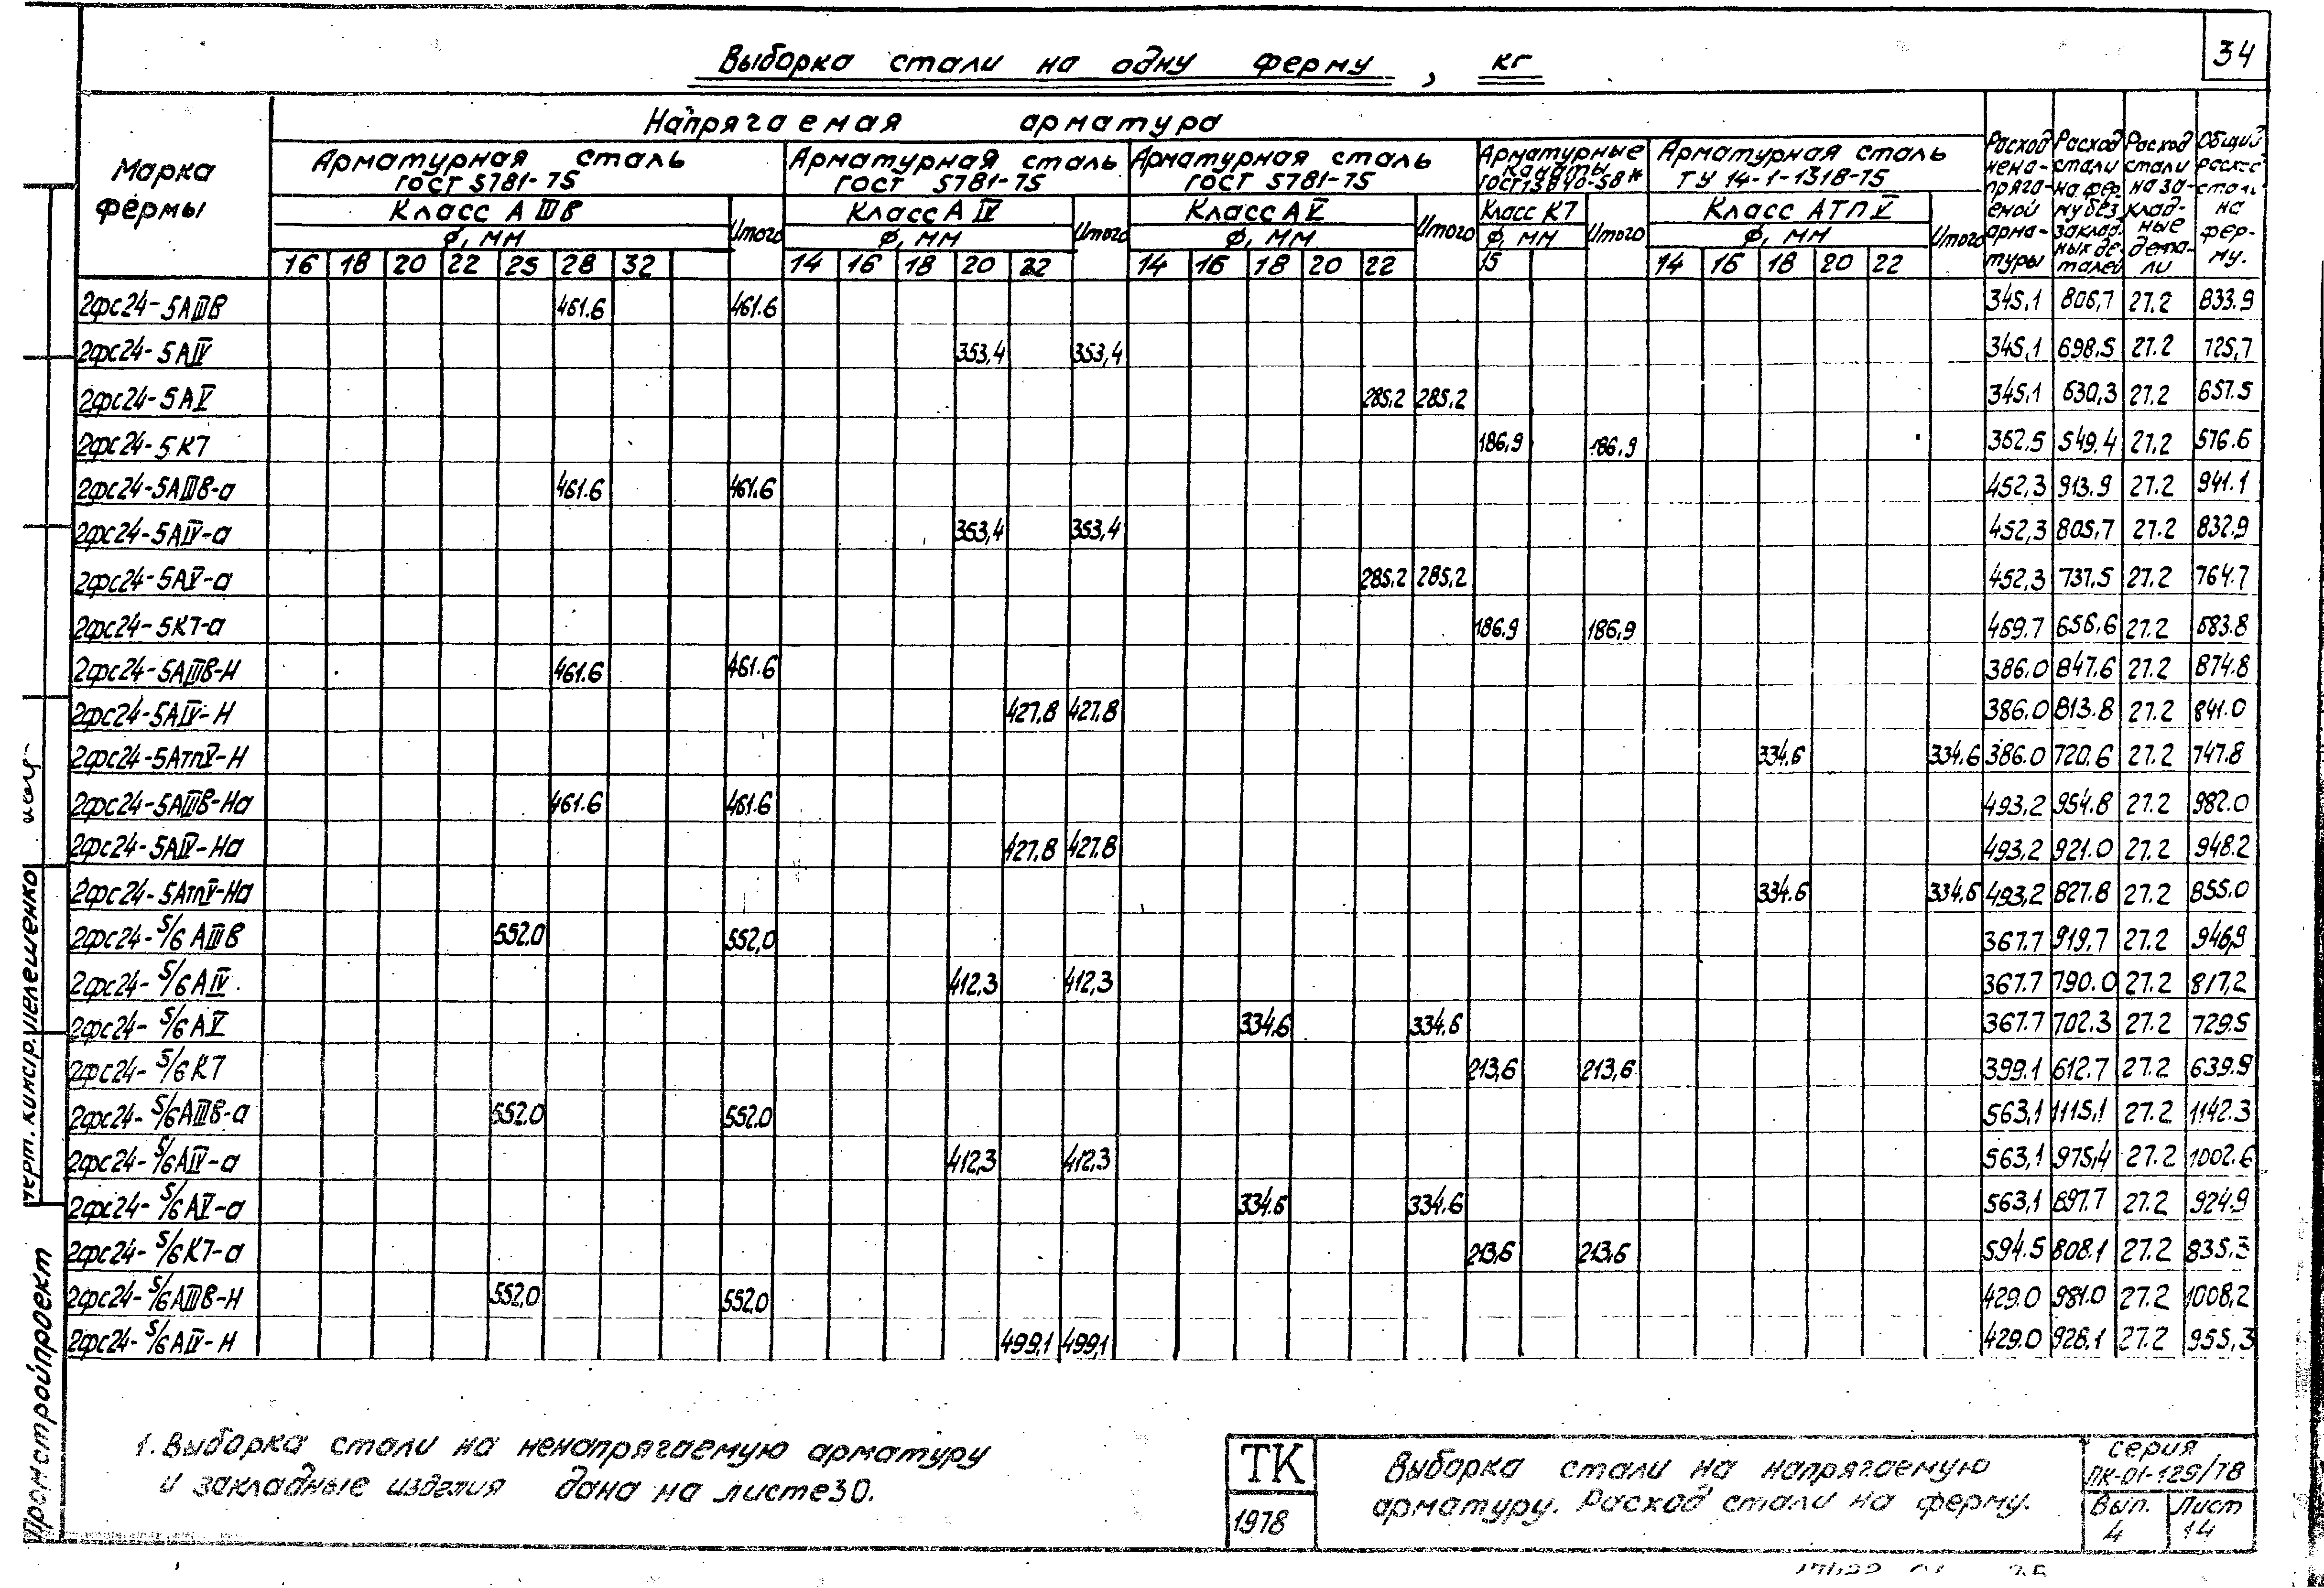 34
Выборка стали на одну ферму, кг
Марка фермы
Напрягаемая арматура
Арматурная сталь ГОСТ 5781-75
Арматурная сталь ГОСТ 5781-75
Арматурная сталь ГОСТ 5781-75
Арматурные канаты ГОСТ 13840-68*
Арматурная сталь ТУ 14-1-1318-75
Расход ненапрягаемой арматуры
Расход стали на ферму без закладных деталей
Расход стали на закладные детали
Общий расход стали на ферму.
Класс А IIIВ Итого Класс А IV Итого Класс А V Итого Класс К7 Итого Класс АТП V Итого
ϕ, мм ϕ, мм ϕ, мм ϕ, мм ϕ, мм
16 18 20 22 25 28 32 14 16 18 20 22 14 16 18 20 22 15 14 16 18 20 22
2фс24-5АIIIВ 461.6 461.6 345,1 806,7 27.2 833.9
2фс24-5АIV 353,4 353,4 345,1 698,5 27.2 725,7
2фс24-5АV 285,2 285,2 345,1 630,3 27.2 657.5
2фс24-5К7 186,9 186,9 362.5 549.4 27.2 576.6
2фс24-5АIIIВ-а 461.6 461.6 452,3 913.9 27.2 941.1
2фс24-5АIV-а 353,4 353,4 452,3 805,7 27.2 832.9
2фс24-5АV-а 285.2 285,2 452,3 737,5 27.2 764.7
2фс24-5К7-а 186.9 186,9 469.7 656,6 27.2 683.8
2фс24-5АIIIВ-Н 461.6 461.6 386.0 847.6 27.2 874.8
2фс24-5АIV-Н 427,8 427.8 386.0 813.8 27.2 841.0
2фс24-5АтпV-Н 334.6 334.6 386.0 720.6 27.2 747.8
2фс24-5АIIIВ-На 461.6 461.6 493,2 954.8 27.2 982.0
2фс24-5АIV-На 427.8 427.8 493,2 921.0 27.2 948.2
2фс24-5АтпV-На 334.6 334.6 493,2 827.8 27.2 855.0
2фс24-5/6 АIIIВ 552.0 552,0 367.7 919.7 27.2 946,9
2фс24-5/6АIV 412,3 412,3 367.7 790.0 27.2 817,2
2фс24-5/6АV 334.6 334.6 367.7 702.3 27.2 729.5
2фс24-5/6К7 213,6 213,6 399.1 612.7 27.2 639.9
2фс24-5/6АIIIВ-а 552.0 552.0 563,1 1115,1 27.2 1142.3
2фс24-5/6АIV-а 412,3 412,3 563,1 975,4 27.2 1002.6
2фс24-5/6АV-а 334.6 334.6 563,1 897.7 27.2 924.9
2фс24-5/6К7-а 213,6 213,6 594.5 808.1 27.2 835,3
2фс24-5/6АIIIВ-Н 552,0 552,0 429.0 981.0 27.2 1008,2
2фс24-5/6АIV-Н 499,1 499,1 429.0 928,1 27.2 955,3
1. Выборка стали на ненапрягаемую арматуру
и закладные изделия дана на листе 30.
ТК
1978
Выборка стали на напрягаемую
арматуру. Расход стали на ферму.
серия
ПК-01-129/78
Вып. 4
Лист 14
Промстройпроект